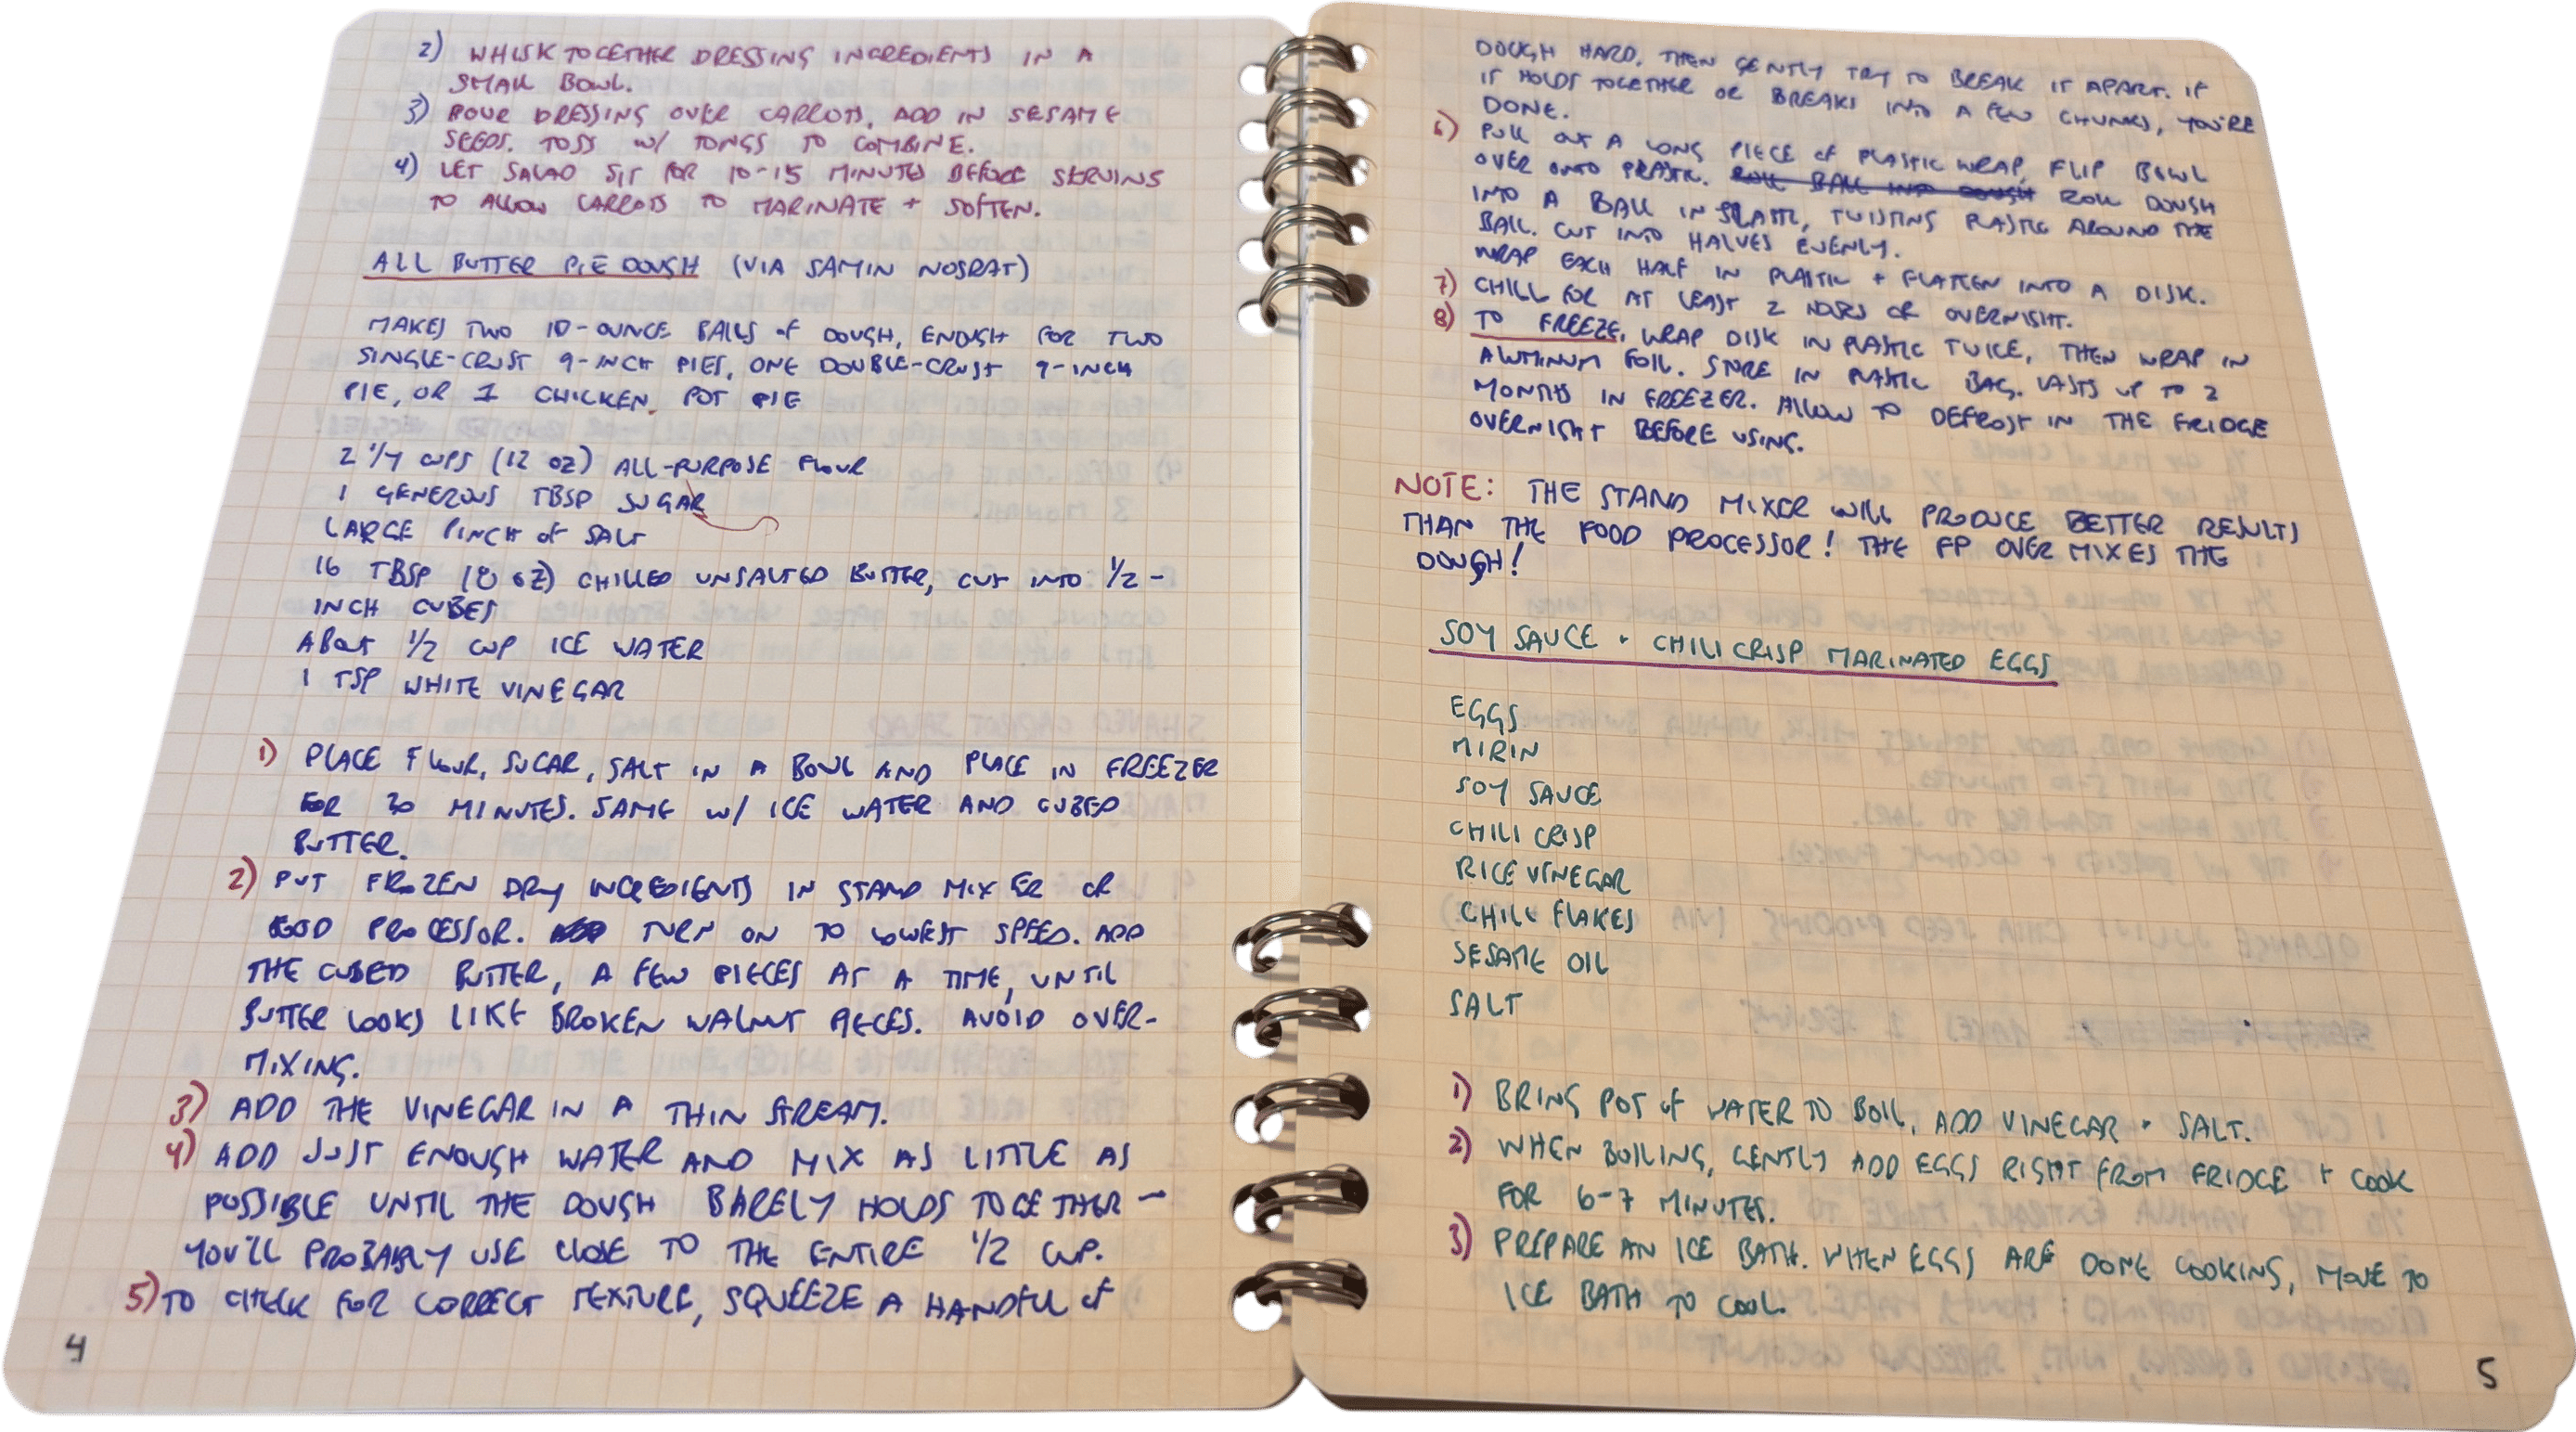 2) WHISK TOGETHER DRESSING INGREDIENTS IN A
SMALL BOWL.
3) POUR DRESSING OVER CARROTS, ADD IN SESAME
SEEDS. TOSS W/ TONGS TO COMBINE.
4) LET SALAD SIT FOR 10-15 MINUTES BEFORE SERVING
TO ALLOW CARROTS TO MARINATE + SOFTEN.
ALL BUTTER PIE DOUGH (VIA SAMIN NOSRAT)
MAKES TWO 10-OUNCE BALLS of DOUGH, ENOUGH FOR TWO
SINGLE-CRUST 9-INCH PIES, ONE DOUBLE-CRUST 9-INCH
PIE, OR 1 CHICKEN POT PIE
2 1/4 CUPS (12 OZ) ALL-PURPOSE FLOUR
1 GENEROUS TBSP SUGAR
LARGE PINCH of SALT
16 TBSP (8 OZ) CHILLED UNSALTED BUTTER, CUT INTO 1/2-
INCH CUBES
ABOUT 1/2 CUP ICE WATER
1 TSP WHITE VINEGAR
1) PLACE FLOUR, SUGAR, SALT IN A BOWL AND PLACE IN FREEZER
FOR 20 MINUTES. SAME W/ ICE WATER AND CUBED
BUTTER.
2) PUT FROZEN DRY INGREDIENTS IN STAND MIXER OR
FOOD PROCESSOR. TURN ON TO LOWEST SPEED. ADD
THE CUBED BUTTER, A FEW PIECES AT A TIME, UNTIL
BUTTER LOOKS LIKE BROKEN WALNUT PIECES. AVOID OVER-
MIXING.
3) ADD THE VINEGAR IN A THIN STREAM.
4) ADD JUST ENOUGH WATER AND MIX AS LITTLE AS
POSSIBLE UNTIL THE DOUGH BARELY HOLDS TOGETHER –
YOU'LL PROBABLY USE CLOSE TO THE ENTIRE 1/2 CUP.
5) TO CHECK FOR CORRECT TEXTURE, SQUEEZE A HANDFUL of
4
DOUGH HARD, THEN GENTLY TRY TO BREAK IT APART. IF
IT HOLDS TOGETHER OR BREAKS INTO A FEW CHUNKS, YOU'RE
DONE.
6) PULL OUT A LONG PIECE of PLASTIC WRAP, FLIP BOWL
OVER ONTO PLASTIC. ROLL BALL INTO DOUGH ROLL DOUGH
INTO A BALL IN PLASTIC, TWISTING PLASTIC AROUND THE
BALL. CUT INTO HALVES EVENLY.
WRAP EACH HALF IN PLASTIC + FLATTEN INTO A DISK.
7) CHILL FOR AT LEAST 2 HOURS OR OVERNIGHT.
8) TO FREEZE, WRAP DISK IN PLASTIC TWICE, THEN WRAP IN
ALUMINUM FOIL. STORE IN PLASTIC BAG. LASTS UP TO 2
MONTHS IN FREEZER. ALLOW TO DEFROST IN THE FRIDGE
OVERNIGHT BEFORE USING.
NOTE: THE STAND MIXER WILL PRODUCE BETTER RESULTS
THAN THE FOOD PROCESSOR! THE FP OVER MIXES THE
DOUGH!
SOY SAUCE + CHILI CRISP MARINATED EGGS
EGGS
MIRIN
SOY SAUCE
CHILI CRISP
RICE VINEGAR
CHILI FLAKES
SESAME OIL
SALT
1) BRING POT of WATER TO BOIL, ADD VINEGAR + SALT.
2) WHEN BOILING, GENTLY ADD EGGS RIGHT FROM FRIDGE + COOK
FOR 6-7 MINUTES.
3) PREPARE AN ICE BATH. WHEN EGGS ARE DONE COOKING, MOVE TO
ICE BATH TO COOL.
5